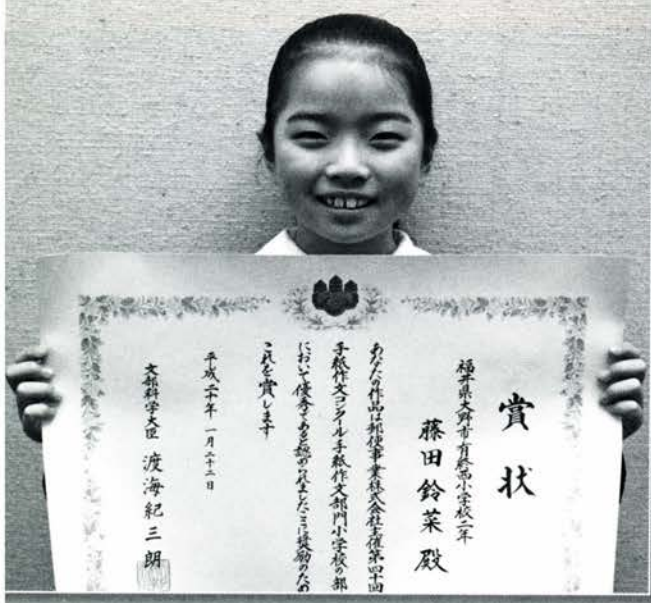 賞状
福井県大野市有終西小学校二年
藤田鈴菜殿
あなたの作品は郵便事業株式会社主催第四十回
手紙作文コンクール手紙作文部門小学校の部
において優秀であると認められましたここに奨励のため
これを賞します
平成二十年一月二十二日
文部科学大臣 渡海紀三朗